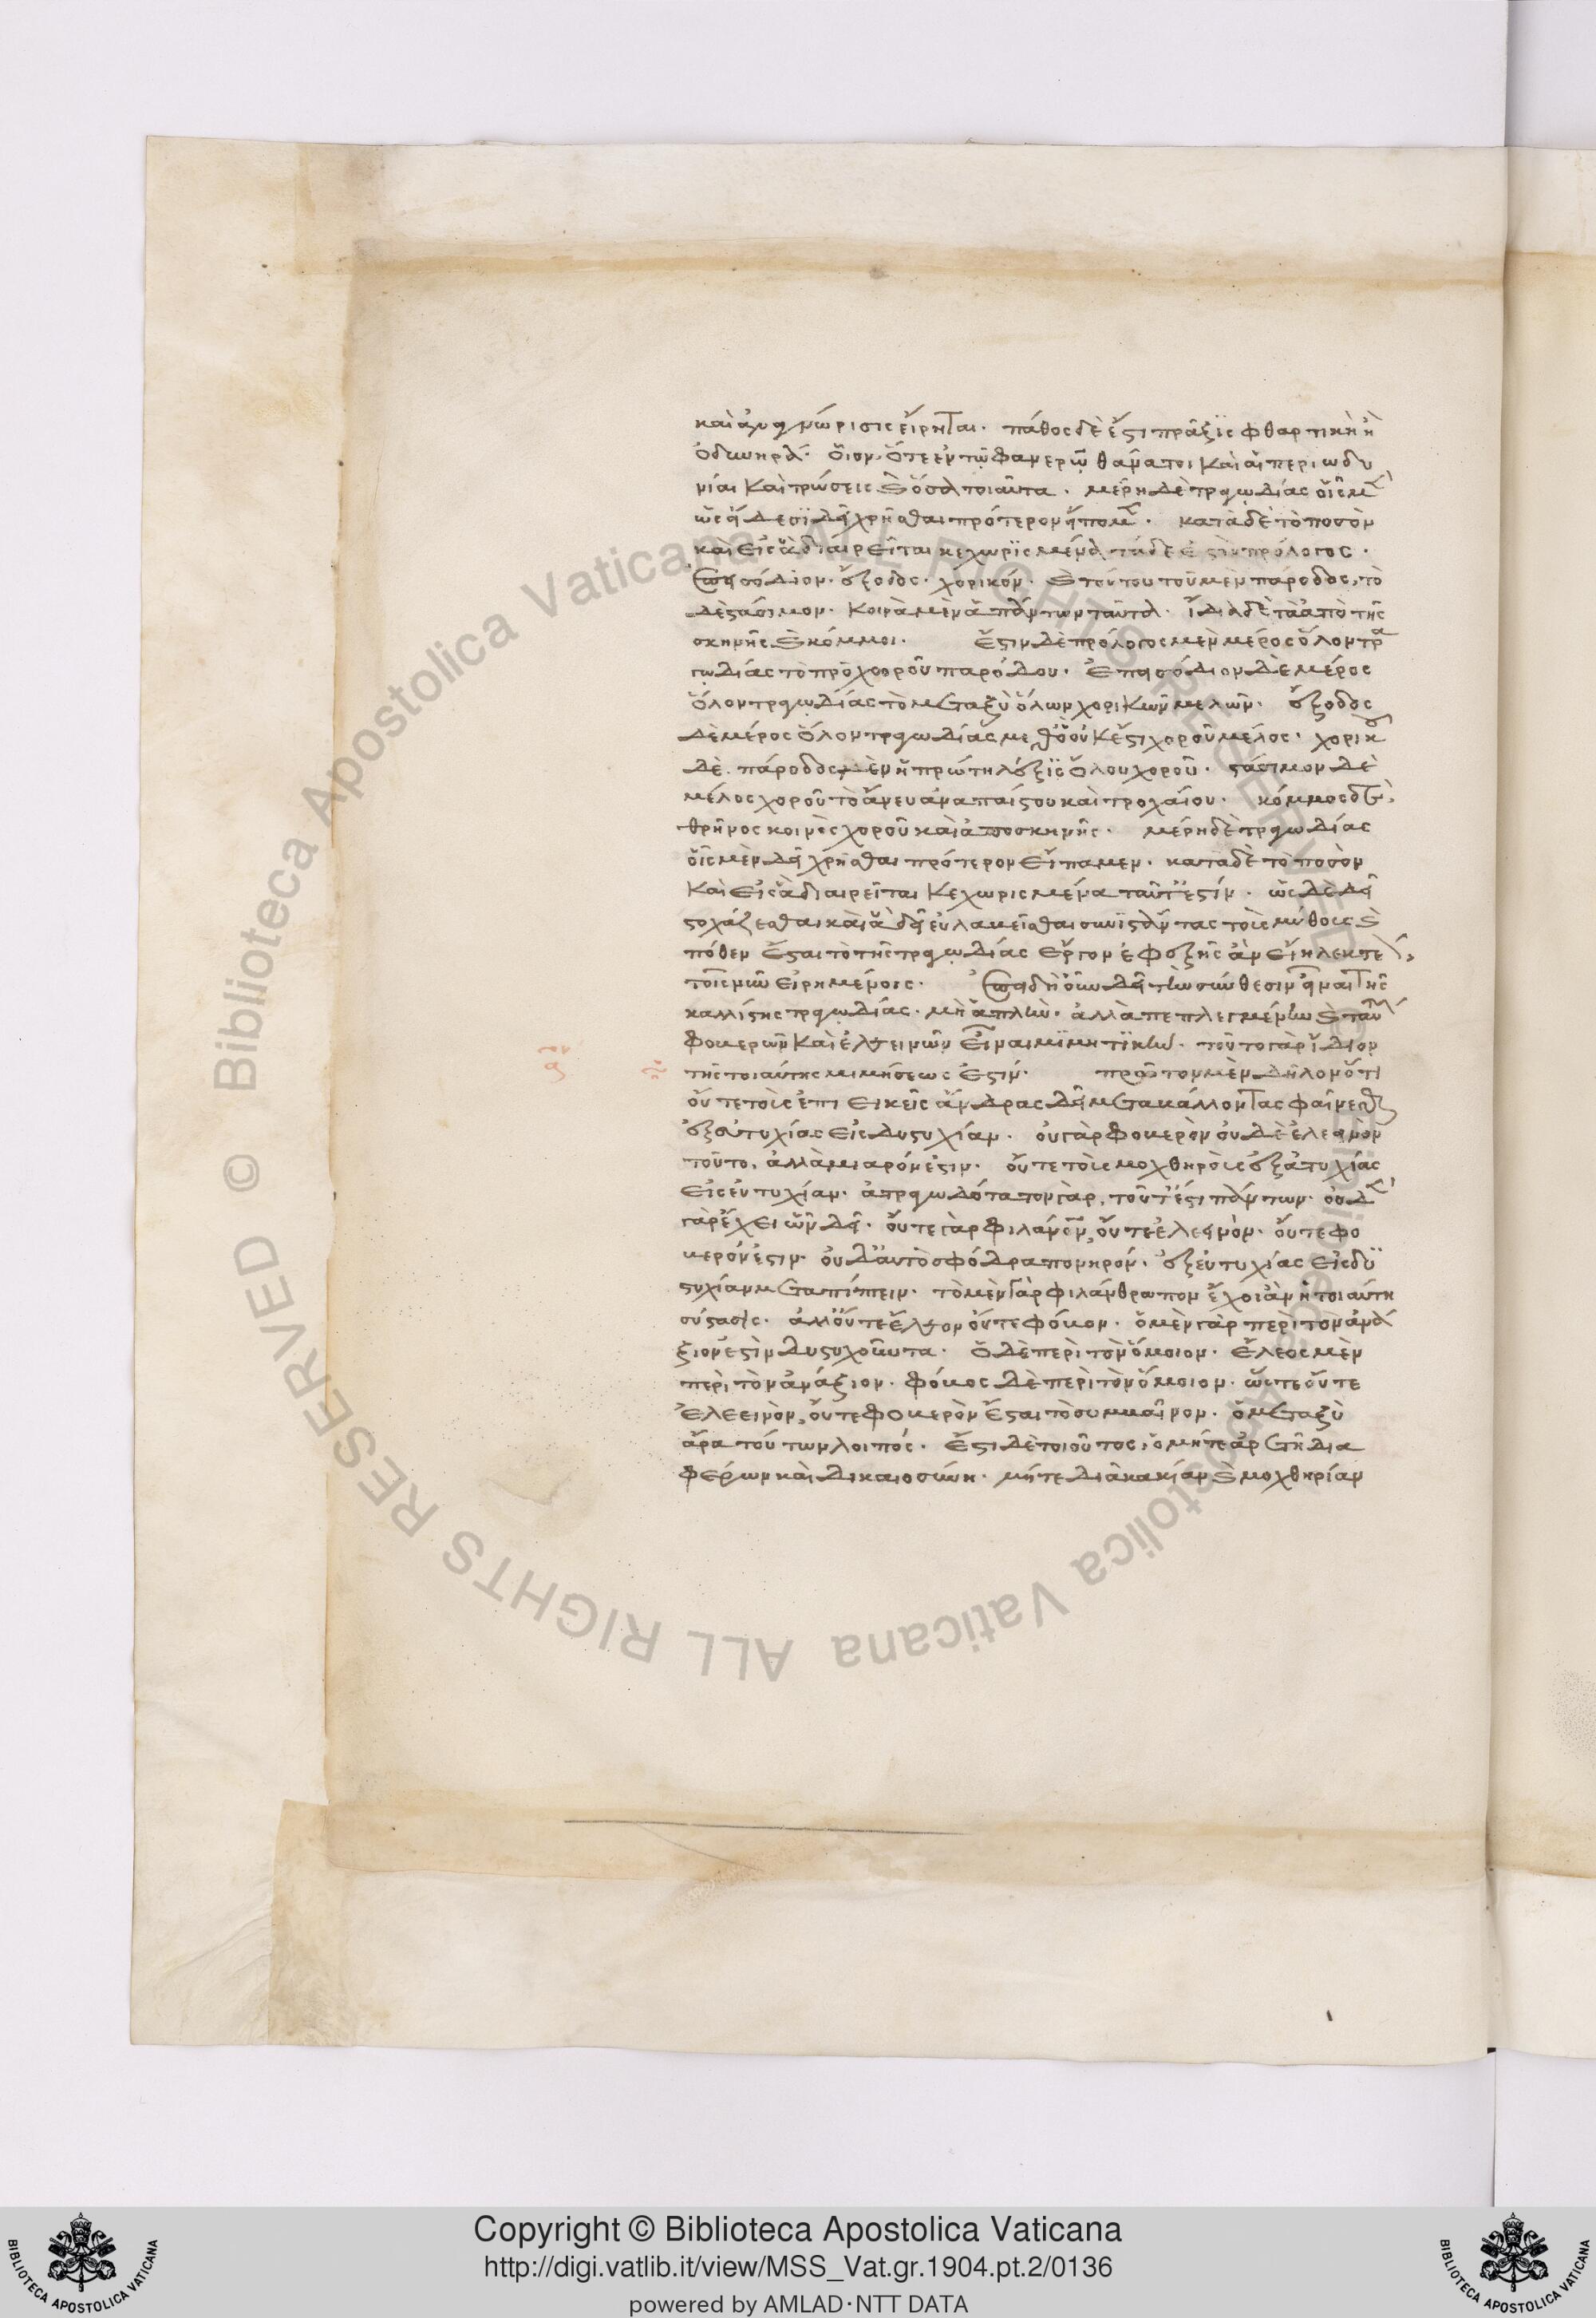 καὶ ἀναγνώρισις εἴρηται. πάθος δὲ ἐστι πρᾶξις φθαρτικὴ ἢ
ὀδυνηρά. οἷον. ὅτε ἐν τῷ φανερῷ θάνατοι καὶ αἱ περιωδυ
νίαι καὶ τρώσεις καὶ ὅσα τοιαῦτα. μέρη δὲ τραγωδίας οἷς μ
ὡς εἴδεσι δεῖ χρῆσθαι πρότερον εἴπομ. κατὰ δὲ τὸ ποσὸν
καὶ εἰς ἃ διαιρεῖται κεχωρισμένα τάδε ἐστὶν πρόλογος.
ἐπεισόδιον. ἔξοδος. χορικόν. καὶ τούτου τοῦ μὲν πάροδος, τὸ
δὲ στάσιμον. κοινὰ μὲν ἁπάντων ταῦτα. ἴδια δὲ τὰ ἀπὸ τῆς
σκηνῆς καὶ κόμμοι. ἔστιν δὲ πρόλογος μὲν μέρος ὅλον τρα
γωδίας τὸ πρὸ χοροῦ παρόδου. ἐπεισόδιον δὲ μέρος
ὅλον τραγωδίας τὸ μεταξὺ ὅλων χορικῶν μελῶν. ἔξοδος
δὲ μέρος ὅλον τραγωδίας μεθ' ὃ οὐκ ἔστι χοροῦ μέλος. χορικοῦ
δὲ. πάροδος μὲν ἡ πρώτη λέξις ὅλου χοροῦ. στάσιμον δὲ
μέλος χοροῦ τὸ ἄνευ ἀναπαίστου καὶ τροχαίου. κόμμος δὲ,
θρῆνος κοινὸς χοροῦ καὶ ἀπὸ σκηνῆς. μέρη δὲ τραγωδίας
οἷς μὲν δεῖ χρῆσθαι πρότερον εἴπαμεν. κατὰ δὲ τὸ ποσὸν
καὶ εἰς ἃ διαιρεῖται κεχωρισμένα ταῦτ' ἐστίν. ὧν δὲ δεῖ
στοχάζεσθαι καὶ ἃ δεῖ εὐλαβεῖσθαι συνιστάντας τοὺς μύθους καὶ
πόθεν ἔσται τὸ τῆς τραγωδίας ἔργον ἐφεξῆς ἂν εἴη λεκτέ,
τοῖς νῦν εἰρημένοις. ἐπειδὴ οὖν δεῖ τὴν σύνθεσιν εἶναι τῆς
καλλίστης τραγωδίας. μὴ ἁπλῆν. ἀλλὰ πεπλεγμένην καὶ ταύτην
φοβερῶν καὶ ἐλεεινῶν εἶναι μιμητικήν. τοῦτο γὰρ ἴδιον
τῆς τοιαύτης μιμήσεώς ἐστιν. πρῶτον μὲν δῆλον ὅτι
οὔτε τοὺς ἐπιεικεῖς ἄνδρας δεῖ μεταβάλλοντας φαίνεσθαι
ἐξ εὐτυχίας εἰς δυστυχίαν. οὐ γὰρ φοβερὸν οὐδὲ ἐλεεινὸν
τοῦτο. ἀλλὰ μιαρόν ἐστιν. οὔτε τοὺς μοχθηροὺς ἐξ ἀτυχίας
εἰς εὐτυχίαν. ἀτραγωδότατον γὰρ, τοῦτ' ἐστὶ πάντων. οὐδ
γὰρ ἔχει ὧν δεῖ. οὔτε γὰρ φιλάνον, οὔτε ἐλεεινὸν. οὔτε φο
βερόν ἐστιν. οὐδ' αὖ τὸ σφόδρα πονηρόν. ἐξ εὐτυχίας εἰς δυ
στυχίαν μεταπίπτειν. τὸ μὲν γὰρ φιλάνθρωπον ἔχοι ἂν ἡ τοιαύτη
σύστασις. ἀλλ' οὔτε ἔλεον οὔτε φόβον. ὁ μὲν γὰρ περὶ τὸν ἀνά
ξιόν ἐστιν δυστυχοῦντα. ὁ δὲ περὶ τὸν ὅμοιον. ἔλεος μὲν
περὶ τὸν ἀνάξιον. φόβος δὲ περὶ τὸν ὅμοιον. ὥστε οὔτε
ἐλεεινὸν, οὔτε φοβερὸν ἔσται τὸ συμβαῖνον. ὁ μεταξὺ
ἄρα τούτων λοιπός. ἔστι δὲ τοιοῦτος, ὁ μήτε ἀρετῆ δια
φέρων καὶ δικαιοσύνη. μήτε διὰ κακίαν καὶ μοχθηρίαν
Copyright © Biblioteca Apostolica Vaticana
http://digi.vatlib.it/view/MSS_Vat.gr.1904.pt.2/0136
powered by AMLAD·NTT DATA